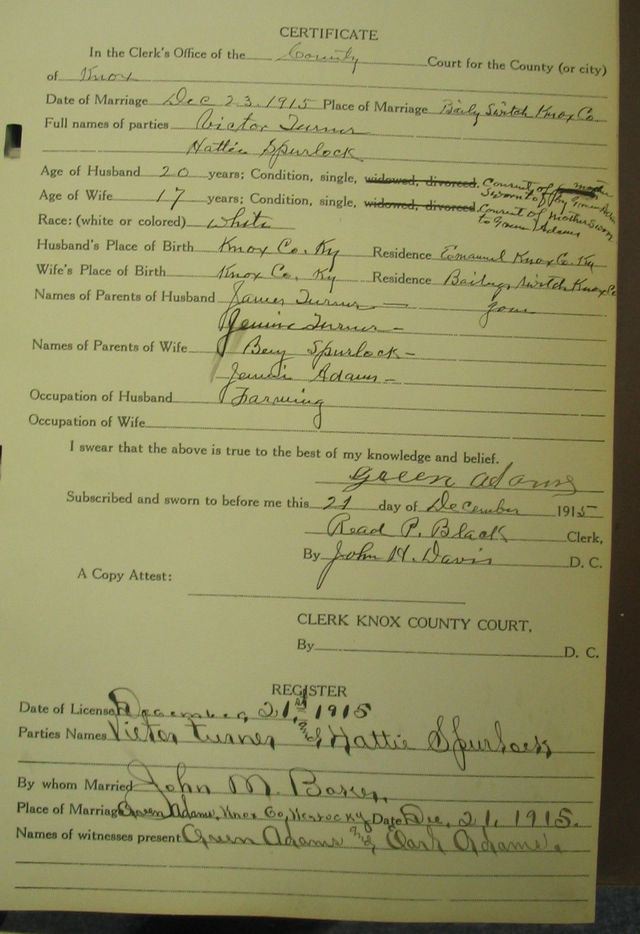 CERTIFICATE
In the Clerk's Office of the County Court for the County (or city)
of Knox
Date of Marriage Dec 23. 1915 Place of Marriage Baily Switch Knox Co.
Full names of parties Victor Turner
Hattie Spurlock
Age of Husband 20 years; Condition, single, widowed, divorced. Consent of mother
Sworn to by Green Adams
Age of Wife 17 years; Condition, single, widowed, divorced Consent of mother sworn
to Green Adams
Race: (white or colored) white
Husband's Place of Birth Knox Co. Ky Residence Emanuel Knox Co. Ky
Wife's Place of Birth Knox Co. Ky Residence Baileys Switch Knox Co
Names of Parents of Husband James Turner —
Turner —
Names of Parents of Wife Benj Spurlock —
Jennie Adams —
Occupation of Husband Farming
Occupation of Wife
I swear that the above is true to the best of my knowledge and belief.
Green Adams
Subscribed and sworn to before me this 21 day of December 1915
Read P. Black Clerk,
By John H. Davis D. C.
A Copy Attest:
CLERK KNOX COUNTY COURT,
By D. C.
REGISTER
Date of License December, 21, st 1915
Parties Names Victor Turner and Hattie Spurlock
By whom Married John M. Baker,
Place of Marriage Green Adams, Knox Co, Kentocky Date Dec, 21, 1915.
Names of witnesses present Green Adams and Adams.